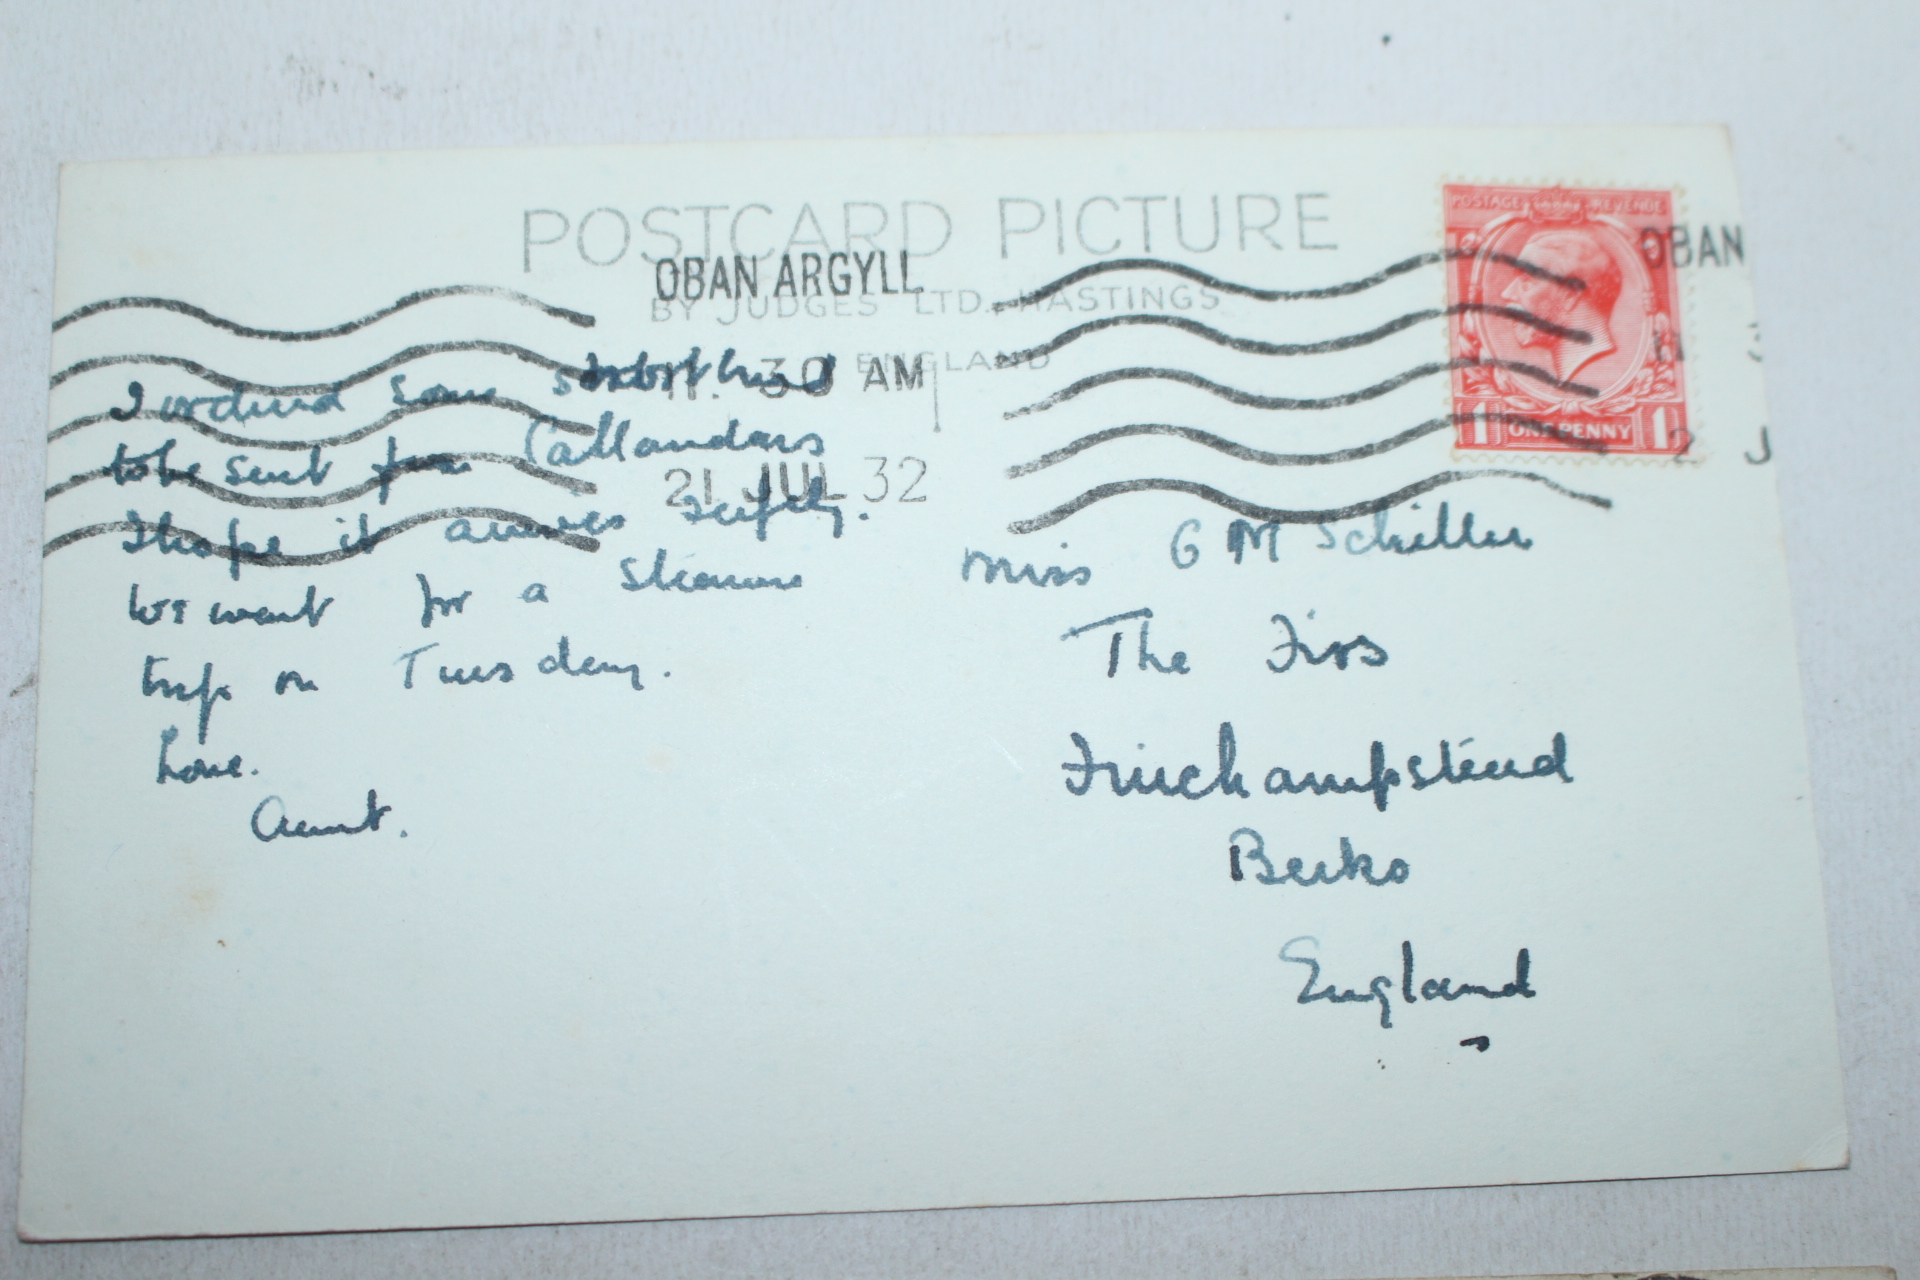 POSTCARD PICTURE
BY JUDGES LTD., HASTINGS
ENGLAND
OBAN ARGYLL
11. 30 AM
21 JUL 32
OBAN
11
2 J
POSTAGE REVENUE
1 ONE PENNY 1
I ordered some shortbread
to be sent from Callandars
I hope it arrives safely.
We went for a steamer
trip on Tuesday.
Love.
Aunt.
Miss G M Schiller
The Firs
Finchampstead
Berks
England